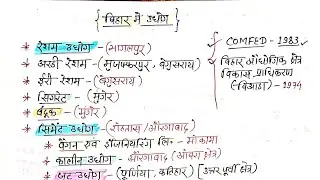 {बिहार में उद्योग}
* रेशम उद्योग - (भागलपुर)
* अरंडी रेशम - (मुजफ्फरपुर, बेगुसराय)
* ईरी रेशम - (बेगुसराय)
* सिगरेट - (मुंगेर)
* बंदूक - (मुंगेर)
* सिमेंट उद्योग - (रोहतास/औरंगाबाद)
* वैगन एवं इंजीनियरिंग लि० - मोकामा
* कालीन उद्योग - औरंगाबाद (ओबरा क्षेत्र)
* जूट उद्योग - (पूर्णिया, कटिहार) [उत्तर पूर्वी क्षेत्र]
✓ COMFED - 1983
✓ बिहार औद्योगिक क्षेत्र
विकास प्राधिकरण
- (बियाडा) - 1974